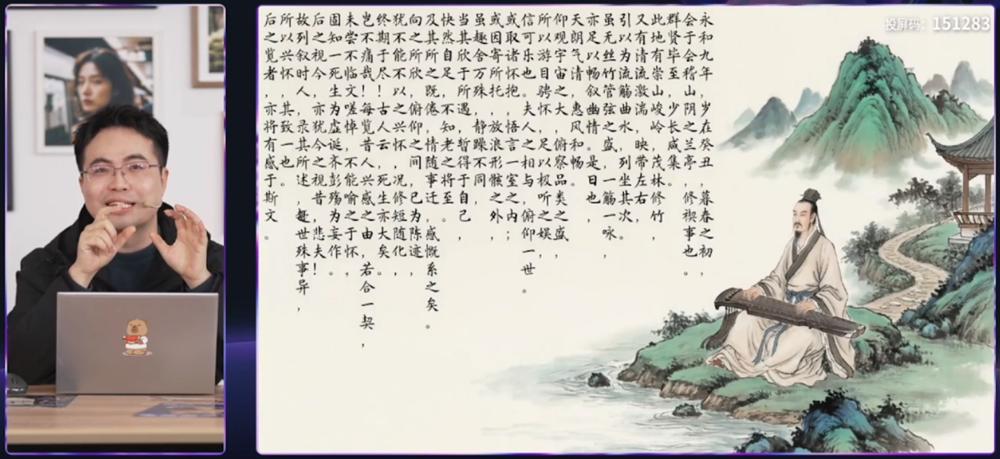 投屏码：151283
永和九年，岁在癸丑，暮春之初，
会于会稽山阴之兰亭，修禊事也。
群贤毕至，少长咸集。
此地有崇山峻岭，茂林修竹，
又有清流激湍，映带左右，
引以为流筋曲水，列坐其次。
虽无丝竹管弦之盛，一筋一咏，
亦足以畅叙幽情。是日也，
天朗气清，惠风和畅，
仰观宇宙之大，俯察品类之盛，
所以游目骋怀，足以极视听之娱，
信可乐也。夫人之相与，俯仰一世。
或取诸怀抱，悟言一室之内，
或因寄所托，放浪形骸之外，
虽趣舍万殊，静躁不同，
当其欣于所遇，暂得于己，
快然自足，不知老之将至，
及其所之既倦，情随事迁，感慨系之矣。
向之所欣，俯仰之间，已为陈迹，
犹不能不以之兴怀，况修短随化，
终期于尽！古人云死生亦大矣。
岂不痛哉！每览昔人兴感之由，若合一契，
未尝不临文嗟悼，不能喻之于怀，
固知一死生为虚诞，齐彭殇为妄作。
后之视今，亦犹今之视昔，悲夫！
故列叙时人，录其所述，趣世殊事异，
所以兴怀，其致一也。
后之览者，亦将有感于斯文。